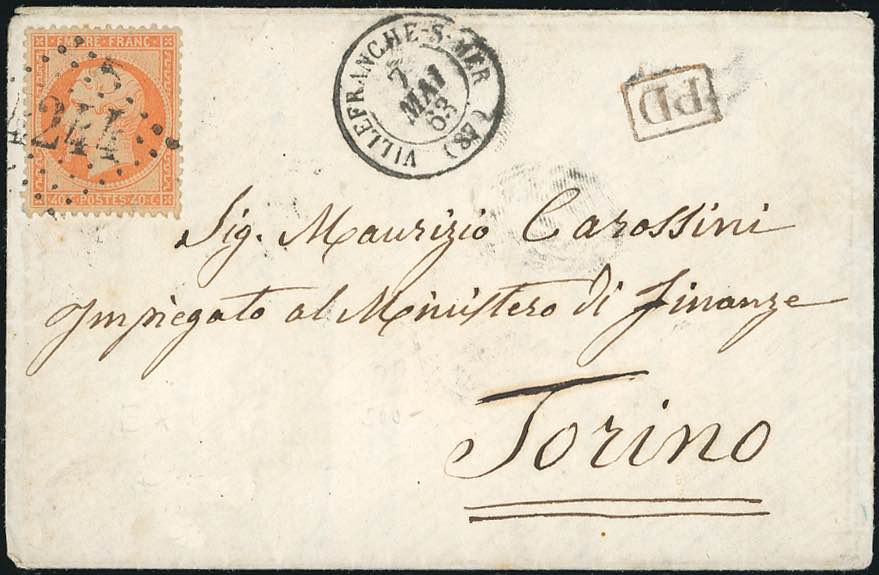 EMPIRE FRANC
244
40 C POSTES 40 C
VILLEFRANCHE-S-MER (88)
7
MAI
63
PD
Sig. Maurizio Carossini
Impiegato al Ministero di Finanze
Torino